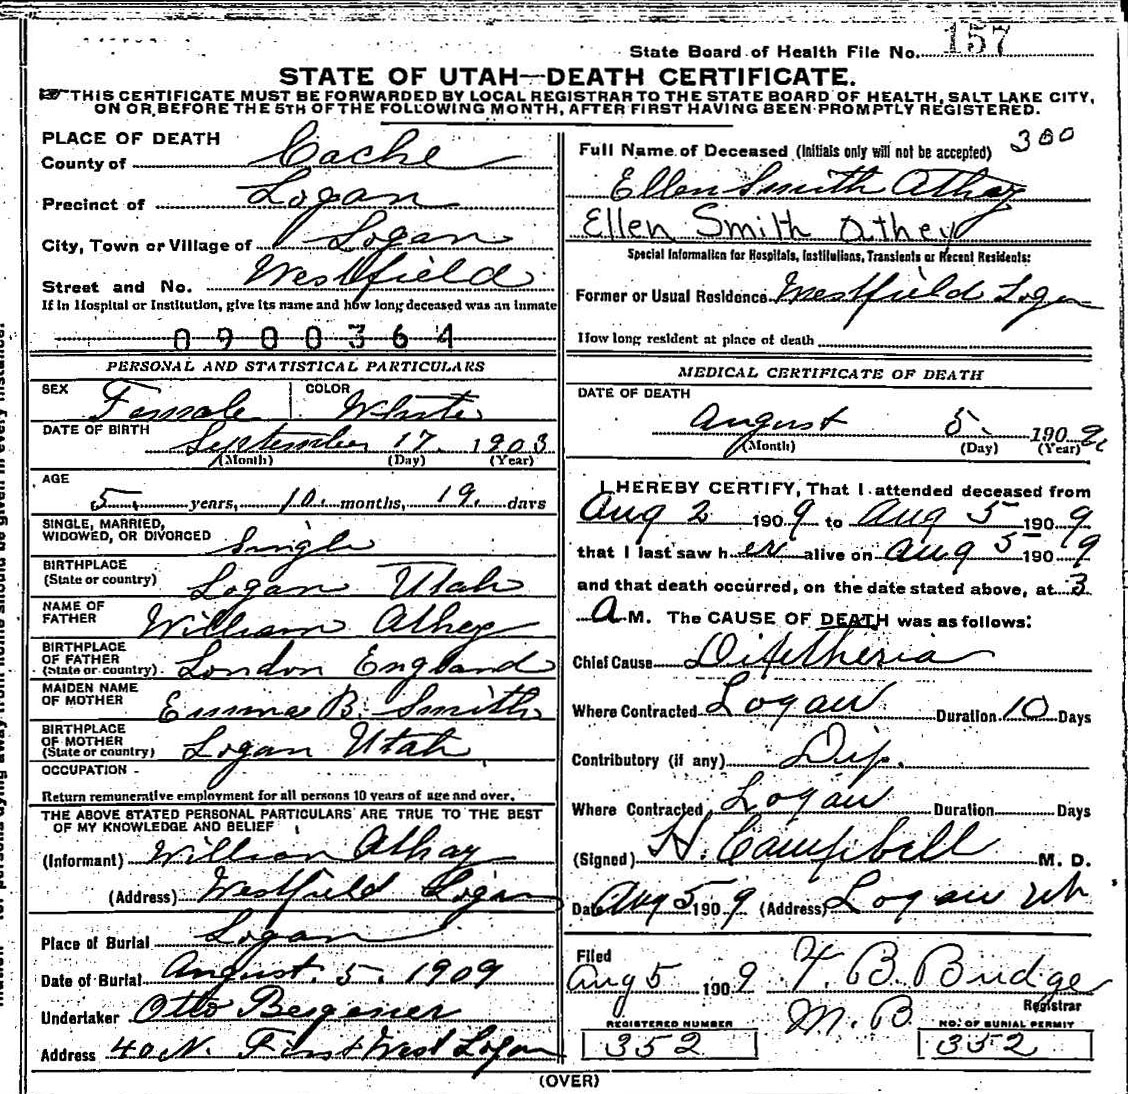 State Board of Health File No. 157
STATE OF UTAH—DEATH CERTIFICATE.
THIS CERTIFICATE MUST BE FORWARDED BY LOCAL REGISTRAR TO THE STATE BOARD OF HEALTH, SALT LAKE CITY,
ON OR BEFORE THE 5TH OF THE FOLLOWING MONTH, AFTER FIRST HAVING BEEN PROMPTLY REGISTERED.
PLACE OF DEATH
County of Cache
Precinct of Logan
City, Town or Village of Logan
Street and No. Westfield
If in Hospital or Institution, give its name and how long deceased was an inmate
0900364
PERSONAL AND STATISTICAL PARTICULARS
SEX Female COLOR White
DATE OF BIRTH September 17. 1903
(Month) (Day) (Year)
AGE
5 years, 10 months, 19 days
SINGLE, MARRIED,
WIDOWED, OR DIVORCED Single
BIRTHPLACE
(State or country) Logan Utah
NAME OF
FATHER William Athey
BIRTHPLACE
OF FATHER
(State or country) London England
MAIDEN NAME
OF MOTHER Emma B. Smith
BIRTHPLACE
OF MOTHER
(State or country) Logan Utah
OCCUPATION
Return remunerative employment for all persons 10 years of age and over.
THE ABOVE STATED PERSONAL PARTICULARS ARE TRUE TO THE BEST
OF MY KNOWLEDGE AND BELIEF
(Informant) William Athay
(Address) Westfield Logan
Place of Burial Logan
Date of Burial August 5. 1909
Undertaker Otto
Address 40 N. First West Logan
300
Full Name of Deceased (Initials only will not be accepted)
Ellen Smith Athay
Ellen Smith Athey
Special Information for Hospitals, Institutions, Transients or Recent Residents:
Former or Usual Residence Westfield Logan
How long resident at place of death
MEDICAL CERTIFICATE OF DEATH
DATE OF DEATH
August 5. 1909
(Month) (Day) (Year)
I HEREBY CERTIFY, That I attended deceased from
Aug 2 1909 to Aug 5 1909
that I last saw her alive on Aug 5 1909
and that death occurred, on the date stated above, at 3
A M. The CAUSE OF DEATH was as follows:
Chief Cause Diftheria
Where Contracted Logan Duration 10 Days
Contributory (if any) Dip.
Where Contracted Logan Duration Days
(Signed) H. Campbell M. D.
Date Aug 5 1909 (Address) Logan Ut
Filed
Aug 5 1909 B. Budge
Registrar
REGISTERED NUMBER NO. OF BURIAL PERMIT
352 352
(OVER)